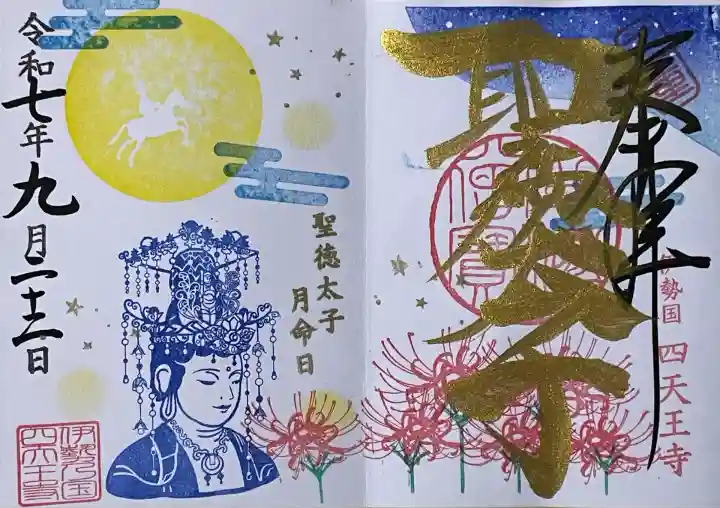 奉拝
聖徳太子
伊勢国 四天王寺
聖徳太子
月命日
令和七年九月二十二日
伊勢之国
四天王寺